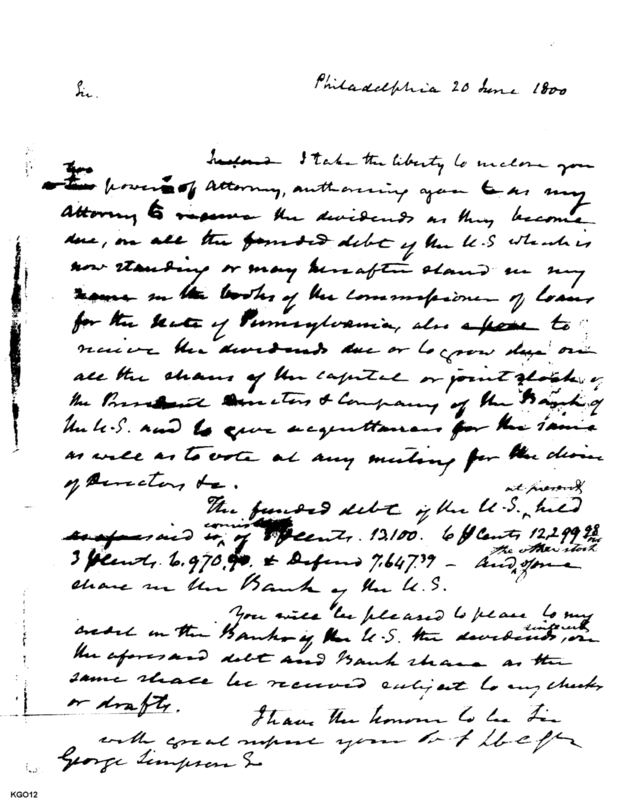 Philadelphia 20 June 1800
Sir.
I take the liberty to inclose you
two powers of Attorney, authorising you as my
Attorney to receive the dividends as they become
due, on all the funded debt of the U.S which is
now standing or may hereafter stand in my
name in the books of the commissioner of loans
for the State of Pennsylvania, also to
receive the dividends due or to grow due on
all the shares of the capital or joint stock of
the President Directors & Company of the Bank of
the U.S. and to give acquittances for the same
as well as to vote at any meeting for the choice
of Directors &c.
at present
The funded debt of the U.S. held
consists
of 8 P Cents. 13,100. 6 P Cents 12,299 98
the other stock
3 P Cents. 6,970.90. & Deferd 7,647.39 – and of one
share in the Bank of the U.S.
You will be pleased to place to my
credit in the Bank of the U.S. the dividends, on
the aforesaid debt and Bank share as the
same shall be received subject to my checks
or drafts.
I have the honour to be Sir
with great respect your
George Simpson
KGO12